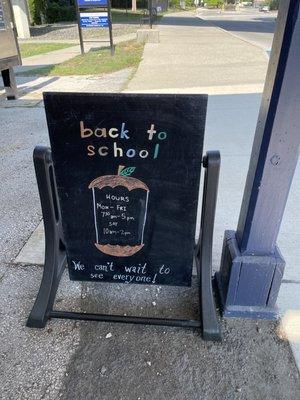 back to
school
HOURS
MON-FRI
7:30am-5pm
SAT
10am-2pm
We can't wait to
see everyone!